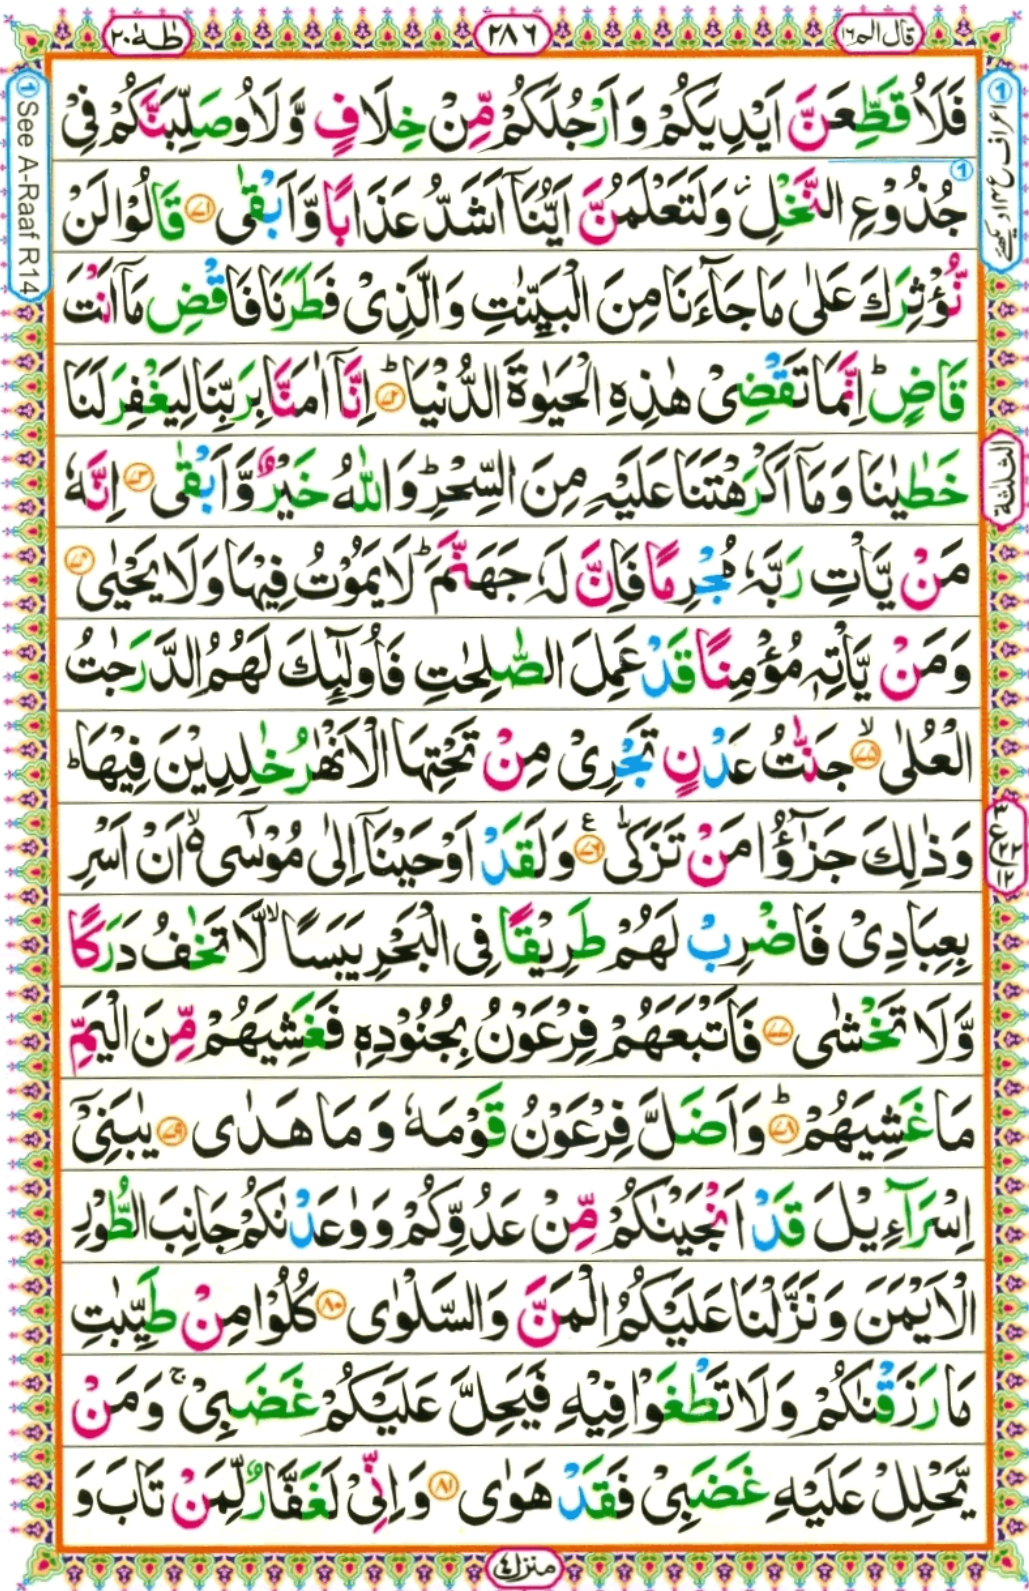 قال الم ١٦
٢٨٦
طٰهٰ ٢٠
فَلَاُ قَطِّعَنَّ اَيْدِيَكُمْ وَاَرْجُلَكُمْ مِّنْ خِلَافٍ وَّلَاُوصَلِّبَنَّكُمْ فِيْ
جُذُوْعِ النَّخْلِ ۫ وَلَتَعْلَمُنَّ اَيُّنَاۤ اَشَدُّ عَذَابًا وَّاَبْقٰى ﴿۷۱﴾ قَالُوْا لَنْ
نُّؤْثِرَكَ عَلٰى مَا جَآءَنَا مِنَ الْبَيِّنٰتِ وَالَّذِيْ فَطَرَنَا فَاقْضِ مَاۤ اَنْتَ
قَاضٍ ؕ اِنَّمَا تَقْضِيْ هٰذِهِ الْحَيٰوةَ الدُّنْيَا ؕ ﴿۷۲﴾ اِنَّاۤ اٰمَنَّا بِرَبِّنَا لِيَغْفِرَ لَنَا
خَطٰيٰنَا وَمَاۤ اَكْرَهْتَنَا عَلَيْهِ مِنَ السِّحْرِ ؕ وَاللّٰهُ خَيْرٌ وَّاَبْقٰى ﴿۷۳﴾ اِنَّهٗ
مَنْ يَّاْتِ رَبَّهٗ مُجْرِمًا فَاِنَّ لَهٗ جَهَنَّمَ ؕ لَا يَمُوْتُ فِيْهَا وَلَا يَحْيٰى ﴿۷۴﴾
وَمَنْ يَّاْتِهٖ مُؤْمِنًا قَدْ عَمِلَ الصّٰلِحٰتِ فَاُولٰٓئِكَ لَهُمُ الدَّرَجٰتُ
الْعُلٰى ۙ ﴿۷۵﴾ جَنّٰتُ عَدْنٍ تَجْرِيْ مِنْ تَحْتِهَا الْاَنْهٰرُ خٰلِدِيْنَ فِيْهَا ؕ
وَذٰلِكَ جَزٰٓؤُا مَنْ تَزَكّٰى ﴿۷۶﴾ ع وَلَقَدْ اَوْحَيْنَاۤ اِلٰى مُوْسٰۤى ۙ۬ اَنْ اَسْرِ
بِعِبَادِيْ فَاضْرِبْ لَهُمْ طَرِيْقًا فِي الْبَحْرِ يَبَسًا ۙ لَّا تَخٰفُ دَرَكًا
وَّلَا تَخْشٰى ﴿۷۷﴾ فَاَتْبَعَهُمْ فِرْعَوْنُ بِجُنُوْدِهٖ فَغَشِيَهُمْ مِّنَ الْيَمِّ
مَا غَشِيَهُمْ ؕ ﴿۷۸﴾ وَاَضَلَّ فِرْعَوْنُ قَوْمَهٗ وَمَا هَدٰى ﴿۷۹﴾ يٰبَنِيْۤ
اِسْرَآءِيْلَ قَدْ اَنْجَيْنٰكُمْ مِّنْ عَدُوِّكُمْ وَوٰعَدْنٰكُمْ جَانِبَ الطُّوْرِ
الْاَيْمَنَ وَنَزَّلْنَا عَلَيْكُمُ الْمَنَّ وَالسَّلْوٰى ﴿۸۰﴾ كُلُوْا مِنْ طَيِّبٰتِ
مَا رَزَقْنٰكُمْ وَلَا تَطْغَوْا فِيْهِ فَيَحِلَّ عَلَيْكُمْ غَضَبِيْ ۚ وَمَنْ
يَّحْلِلْ عَلَيْهِ غَضَبِيْ فَقَدْ هَوٰى ﴿۸۱﴾ وَاِنِّيْ لَغَفَّارٌ لِّمَنْ تَابَ وَ
① اعراف ع ١٤ دیکھئے
① See A-Raaf R14
الثلثة
٣ ع ٢٢ ١٢
منزل ٤